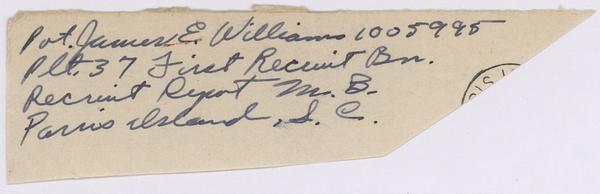 Pvt. James E. Williams 1005995
Plt. 37 First Recruit Bn.
Recruit Depot M. B.
Parris Island, S. C.